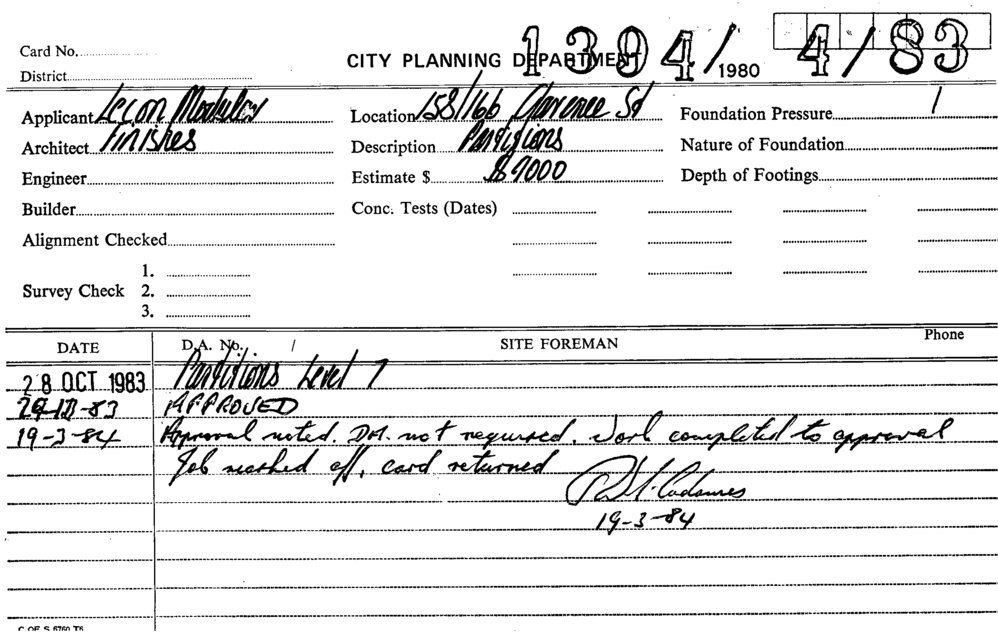 Card No.
CITY PLANNING DEPARTMENT 1394/1980 4/83
District
Applicant Modular Location 158/166 Clarence St Foundation Pressure
Architect Finishes Description Partitions Nature of Foundation
Engineer Estimate $ $9000 Depth of Footings
Builder Conc. Tests (Dates)
Alignment Checked
1.
Survey Check 2.
3.
DATE D.A. No. / SITE FOREMAN Phone
28 OCT 1983 Partitions Level 7
APPROVED
19-3-84 Approval noted. DA. not required. Work completed to approval
Job marked off, card returned
19-3-84
C OF S 6760 T6